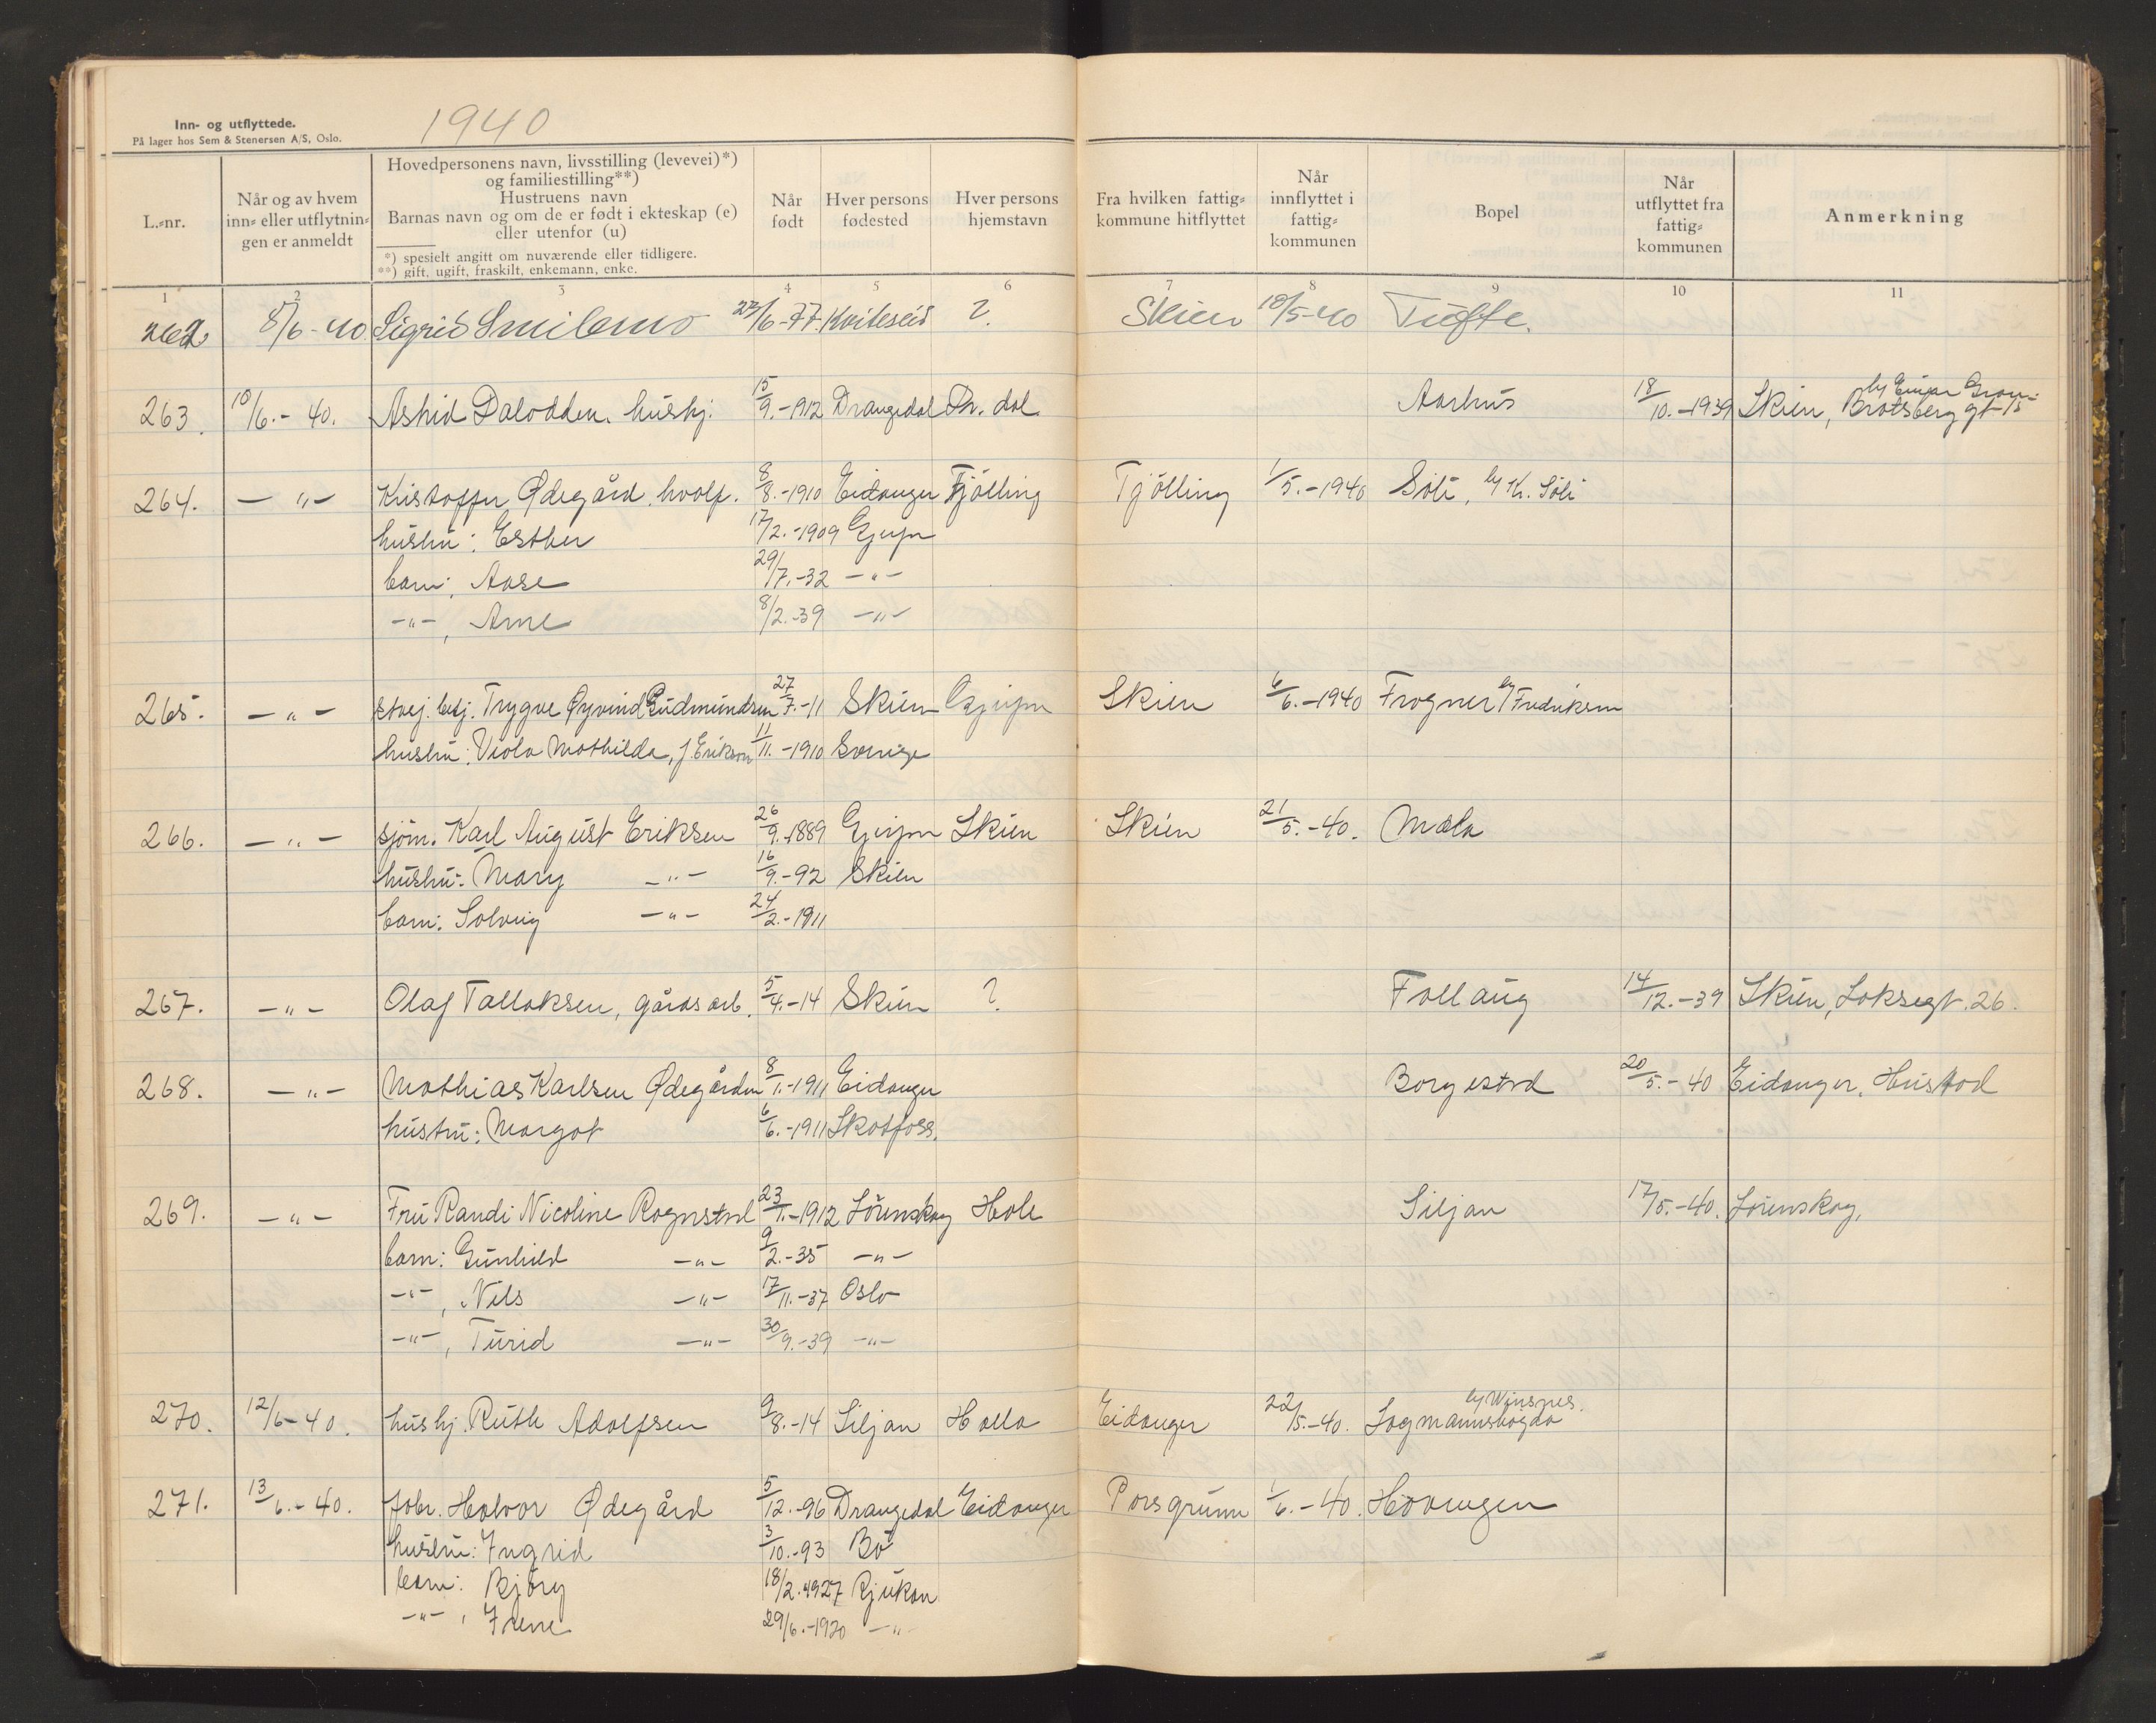 Inn- og utflyttede.
På lager hos Sem & Stenersen A/S, Oslo.
1940
L.-nr.
Når og av hvem inn- eller utflytnin-gen er anmeldt
Hovedpersonens navn, livsstilling (levevei)*)
og familiestilling**)
Hustruens navn
Barnas navn og om de er født i ekteskap (e)
eller utenfor (u)
*) spesielt angitt om nuværende eller tidligere.
**) gift, ugift, fraskilt, enkemann, enke.
Når født
Hver persons fødested
Hver persons hjemstavn
Fra hvilken fattig-kommune hitflyttet
Når innflyttet i fattig-kommunen
Bopel
Når utflyttet fra fattig-kommunen
Anmerkning
1 2 3 4 5 6 7 8 9 10 11
262 8/6-40 Sigrid /6-77 Kviteseid ? Skien 10/5-40 Tufte.
263. 10/6.-40. Astrid Dalodden, hushj. 15/9.-1912 Drangedal Dr.dal Aarhus 18/10.-1939 Skien, Bratsberggt 15
by Einar
264. -"- Kristoffer Ødegård 8/8.-1910 Eidanger Tjölling Tjölling 1/5.-1940 Söli, by K. Söli
hustru: Esther 17/2.-1909 Gjerpn
barn, Aase 29/7.-32 -"-
-"-, Arne 8/2.-39 -"-
265. -"- Trygve Øyvind Gudmundsen 27/7.-11 Skien Gjerpn Skien 6/6.-1940 Frogner by Fredriksen
hustru: Viola Mathilde, f. Erikson 11/11.-1910 Sverige
266. -"- sjöm. Karl August Eriksen 26/9.-1889 Gjerpn Skien Skien 21/5.-40. Mæla
hustru: Mary -"- 16/9.-92 Skien
barn: Solveig -"- 24/2.-1911
267. -"- Olaf Tallaksen, gårdsarb. 5/4.-14 Skien ? Follaug 14/12.-39 Skien, Loksegt. 26.
268. -"- Mathias Karlsen Ødegården 8/1.-1911 Eidanger Borgestad 20/5.-40 Eidanger, Hustad
hustru: Margot 6/6.-1911 Skotfoss.
269. -"- Fru Randi Nicoline Rognstad 23/1.-1912 Lörenskog Hole Siljan 17/5.-40. Lörenskog,
barn: Gunhild -"- 9/2.-35 -"-
-"-, Nils -"- 17/11.-37 Oslo
-"-, Turid -"- 30/9.-39 -"-
270. 12/6-40. hushj. Ruth Adolfsen 9/8.-14 Siljan Holla Eidanger 22/5.-40. Lagmannskogda
by Winsnes.
271. 13/6.-40. fabr. Halvor Ødegård 5/12.-96 Drangedal Eidanger Porsgrunn 1/6.-40. Hovengen
hustru: Ingrid 3/10.-93 Bö
barn: Björg 18/2.-1927 Rjukan
-"-, Irene 29/6.-1920 -"-